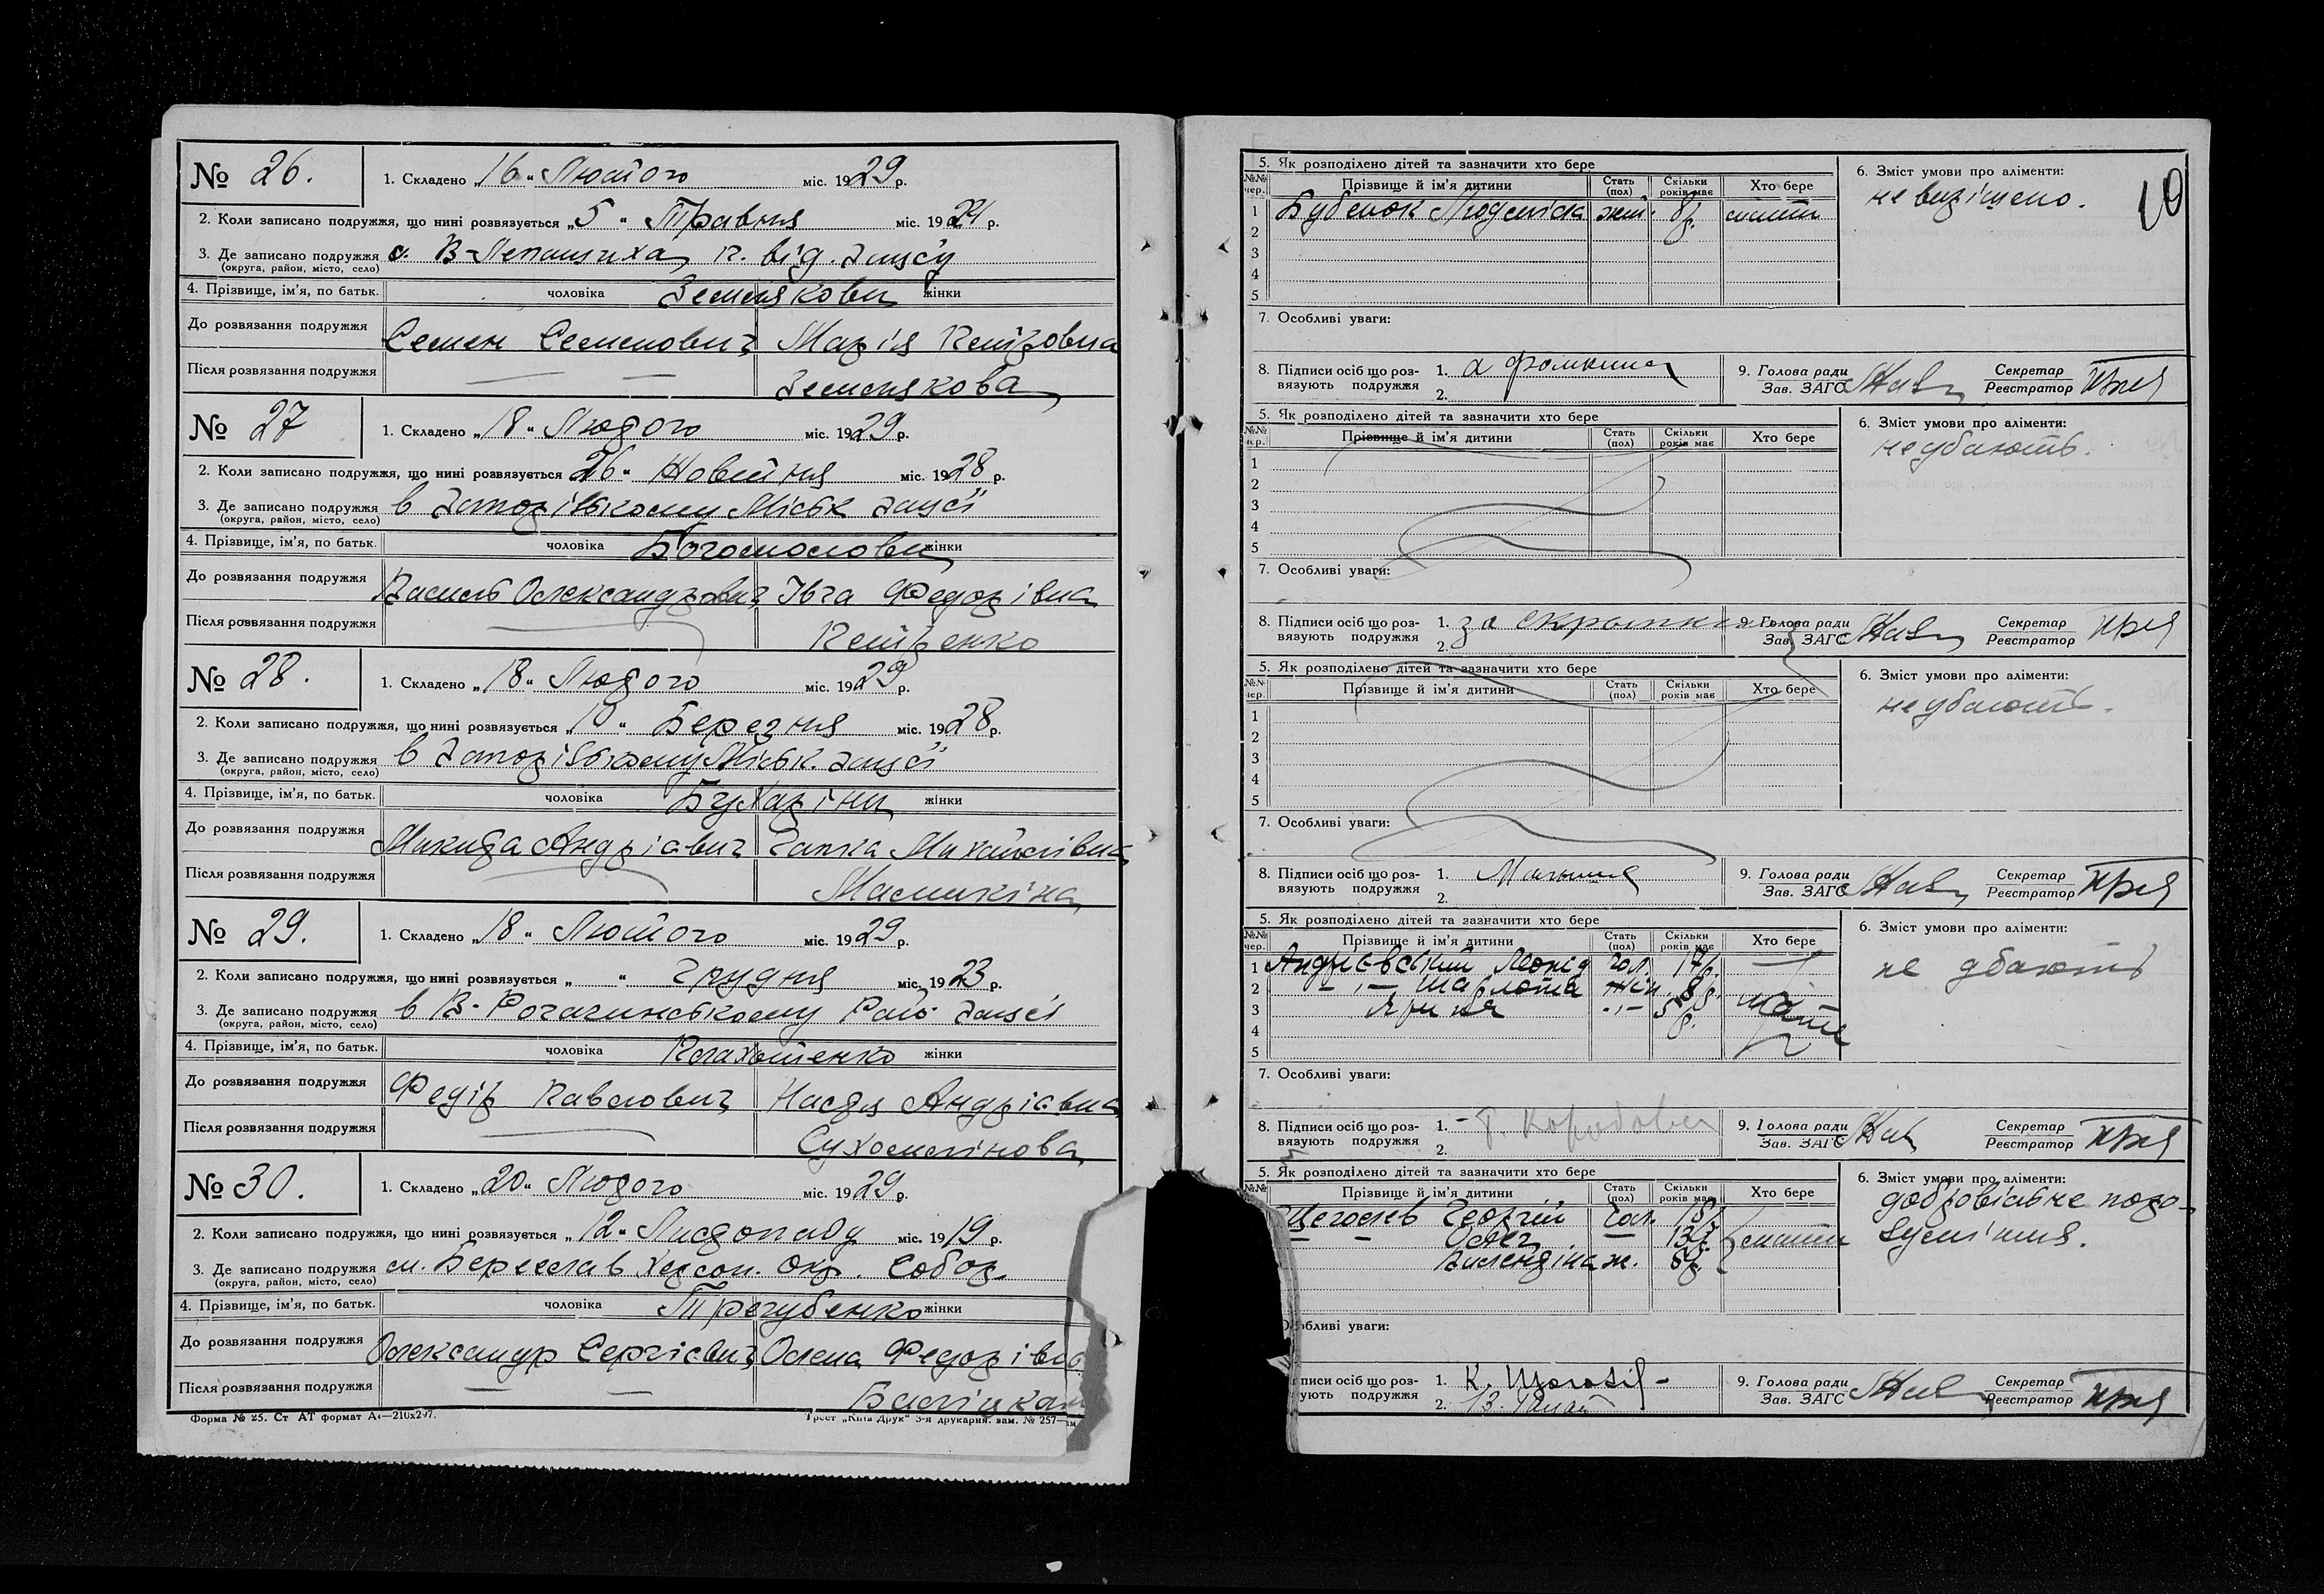 № 26.
1. Складено „16“ Лютого міс. 1929 р.
2. Коли записано подружжя, що нині розвязується „5“ Травня міс. 1924 р.
3. Де записано подружжя с. В-Лепатиха,
(округа, район, місто, село)
4. Прізвище, ім'я, по батьк. чоловіка Земляков жінки
До розвязання подружжя Семен Семенович Марія Петровна
Після розвязання подружжя — — Землякова
№ 27
1. Складено „18“ Людого міс. 1929 р.
2. Коли записано подружжя, що нині розвязується 26“ Новтня міс. 1928 р.
3. Де записано подружжя в Запорізькому Міськ Загсі
(округа, район, місто, село)
4. Прізвище, ім'я, по батьк. чоловіка Богомолови жінки
До розвязання подружжя Василь Олександрович Івга Федорівна
Після розвязання подружжя Петренко
№ 28.
1. Складено „18“ Людого міс. 1929 р.
2. Коли записано подружжя, що нині розвязується „10“ Березня міс. 1928 р.
3. Де записано подружжя в Запорізькому Міськ. Загсі
(округа, район, місто, село)
4. Прізвище, ім'я, по батьк. чоловіка Бухаріни жінки
До розвязання подружжя Микида Андрієвич Ганна Михайлівна
Після розвязання подружжя Маликіна
№ 29.
1. Складено „18“ Лютого міс. 1929 р.
2. Коли записано подружжя, що нині розвязується „ “ Грудня міс. 1923 р.
3. Де записано подружжя в В-Рогачинському Рай. Загсі
(округа, район, місто, село)
4. Прізвище, ім'я, по батьк. чоловіка жінки
До розвязання подружжя Федір Павлович Насдя Андрієвна
Після розвязання подружжя Сухомлінова
№ 30.
1. Складено „20“ Людого міс. 1929 р.
2. Коли записано подружжя, що нині розвязується „12“ Лисдопаду міс. 1919 р.
3. Де записано подружжя м. Береслав Херсон. Окр. Собор.
(округа, район, місто, село)
4. Прізвище, ім'я, по батьк. чоловіка Трегубенко жінки
До розвязання подружжя Олександр Сергієвич Олена Федорівна
Після розвязання подружжя — — Баліцка
Форма № 25. Ст АТ формат А4—210x297. Трест „Київ Друк“ 3-я друкарня. зам. № 257
10
5. Як розподілено дітей та зазначити хто бере
6. Зміст умови про аліменти:
№№ чер. Прізвище й ім'я дитини Стать (пол) Скільки років має Хто бере
не вирішено.
1 Бубенок Людмила жін. 8р. мати
2
3
4
5
7. Особливі уваги:
8. Підписи осіб що розвязують подружжя 1.
2.
9. Голова ради Зав. ЗАГС Секретар Реєстратор
5. Як розподілено дітей та зазначити хто бере
6. Зміст умови про аліменти:
№№ чер. Прізвище й ім'я дитини Стать (пол) Скільки років має Хто бере
не дбають.
1
2
3
4
5
7. Особливі уваги:
8. Підписи осіб що розвязують подружжя 1. за
2.
9. Голова ради Зав. ЗАГС Секретар Реєстратор
5. Як розподілено дітей та зазначити хто бере
6. Зміст умови про аліменти:
№№ чер. Прізвище й ім'я дитини Стать (пол) Скільки років має Хто бере
не дбають.
1
2
3
4
5
7. Особливі уваги:
8. Підписи осіб що розвязують подружжя 1.
2.
9. Голова ради Зав. ЗАГС Секретар Реєстратор
5. Як розподілено дітей та зазначити хто бере
6. Зміст умови про аліменти:
№№ чер. Прізвище й ім'я дитини Стать (пол) Скільки років має Хто бере
не дбають
1 Андрієвський Леонід чол. 17р. —
2 —„— Шарлота жін. 8р.
3 Ярина —„— 5р. мати
4
5
7. Особливі уваги:
8. Підписи осіб що розвязують подружжя 1.
2.
9. Голова ради Зав. ЗАГС Секретар Реєстратор
5. Як розподілено дітей та зазначити хто бере
6. Зміст умови про аліменти:
№№ Прізвище й ім'я дитини Стать (пол) Скільки років має Хто бере
добровільне поро-
зуміння.
Щеголев Георгій чол. 15р.
— — Олег — 13р. мати
Валендіна ж. 6р.
бливі уваги:
писи осіб що розують подружжя 1. К.
2.
9. Голова ради Зав. ЗАГС Секретар Реєстратор